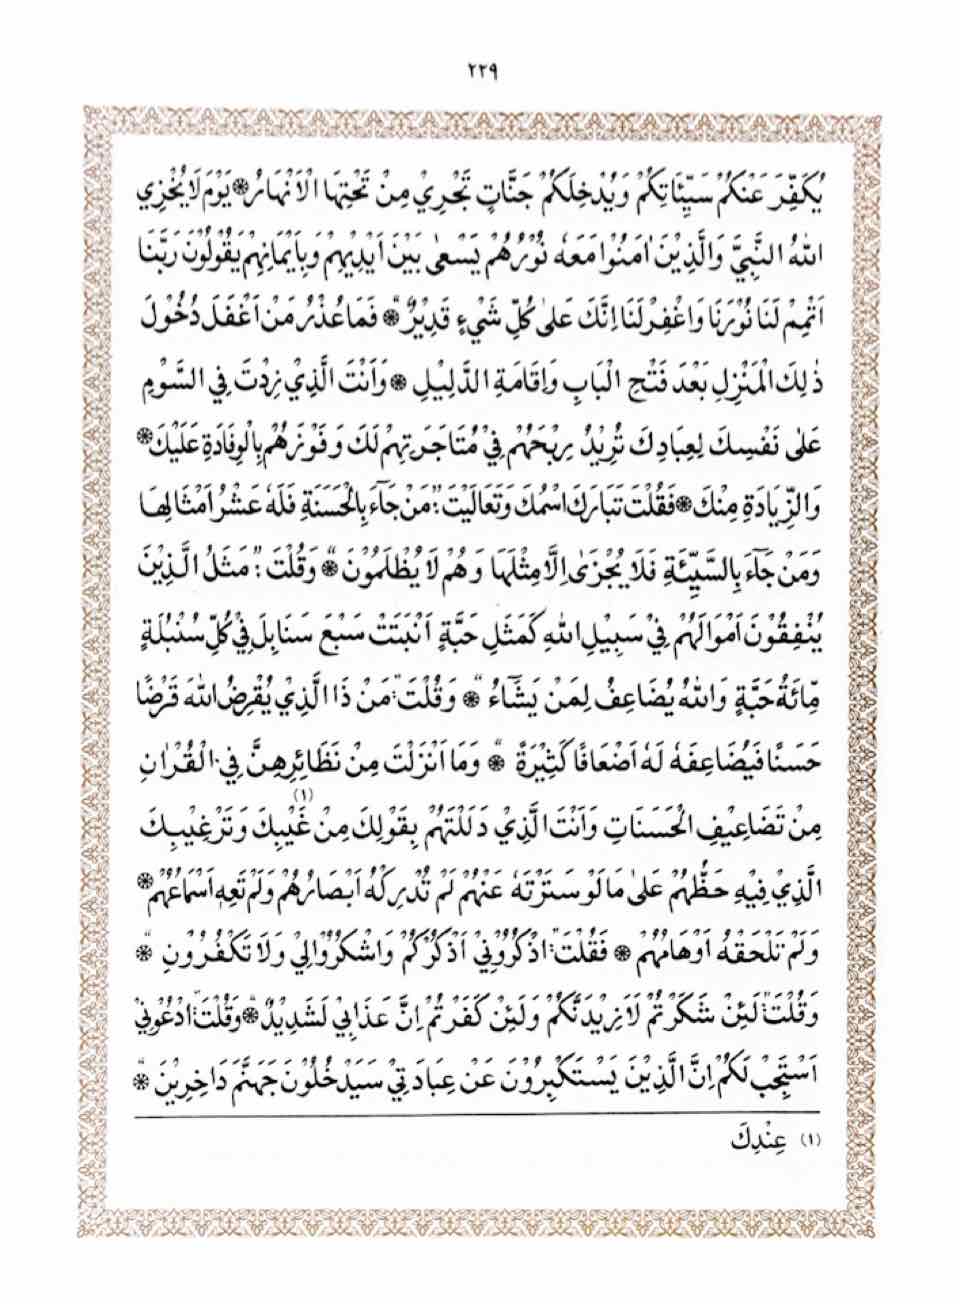 ٢٢٩
يُكَفِّرَ عَنْكُمْ سَيِّئَاتِكُمْ وَيُدْخِلَكُمْ جَنَّاتٍ تَجْرِيْ مِنْ تَحْتِهَا الْاَنْهَارُ۞يَوْمَ لَا يُخْزِي
اللهُ النَّبِيَّ وَالَّذِيْنَ اٰمَنُوْا مَعَهٗ نُوْرُهُمْ يَسْعٰى بَيْنَ اَيْدِيْهِمْ وَبِاَيْمَانِهِمْ يَقُوْلُوْنَ رَبَّنَا
اَتْمِمْ لَنَا نُوْرَنَا وَاغْفِرْلَنَا اِنَّكَ عَلٰى كُلِّ شَيْءٍ قَدِيْرٌ"۞ فَمَا عُذْرُ مَنْ اَغْفَلَ دُخُوْلَ
ذٰلِكَ الْمَنْزِلِ بَعْدَ فَتْحِ الْبَابِ وَاِقَامَةِ الدَّلِيْلِ ۞وَاَنْتَ الَّذِيْ زِدْتَ فِي السَّوْمِ
عَلٰى نَفْسِكَ لِعِبَادِكَ تُرِيْدُ رِبْحَهُمْ فِيْ مُتَاجَرَتِهِمْ لَكَ وَفَوْزَهُمْ بِالْوِفَادَةِ عَلَيْكَ۞
وَالزِّيَادَةِ مِنْكَ۞فَقُلْتَ تَبَارَكَ اسْمُكَ وَتَعَالَيْتَ:"مَنْ جَآءَ بِالْحَسَنَةِ فَلَهٗ عَشْرُ اَمْثَالِهَا
وَمَنْ جَآءَ بِالسَّيِّئَةِ فَلَا يُجْزٰى اِلَّا مِثْلَهَا وَهُمْ لَا يُظْلَمُوْنَ"۞ وَقُلْتَ:"مَثَلُ الَّذِيْنَ
يُنْفِقُوْنَ اَمْوَالَهُمْ فِيْ سَبِيْلِ اللهِ كَمَثَلِ حَبَّةٍ اَنْبَتَتْ سَبْعَ سَنَابِلَ فِيْ كُلِّ سُنْبُلَةٍ
مِّائَةُ حَبَّةٍ وَاللهُ يُضَاعِفُ لِمَنْ يَشَآءُ"۞ وَقُلْتَ:"مَنْ ذَا الَّذِيْ يُقْرِضُ اللهَ قَرْضًا
حَسَنًا فَيُضَاعِفَهٗ لَهٗ اَضْعَافًا كَثِيْرَةً"۞ وَمَا اَنْزَلْتَ مِنْ نَظَائِرِهِنَّ فِي الْقُرْاٰنِ
مِنْ تَضَاعِيْفِ الْحَسَنَاتِ وَاَنْتَ الَّذِيْ دَلَلْتَهُمْ بِقَوْلِكَ مِنْ غَيْبِكَ (١) وَتَرْغِيْبِكَ
الَّذِيْ فِيْهِ حَظُّهُمْ عَلٰى مَا لَوْ سَتَرْتَهٗ عَنْهُمْ لَمْ تُدْرِكْهُ اَبْصَارُهُمْ وَلَمْ تَعِهِ اَسْمَاعُهُمْ۞
وَلَمْ تَلْحَقْهُ اَوْهَامُهُمْ ۞ فَقُلْتَ:"اذْكُرُوْنِيْ اَذْكُرْكُمْ وَاشْكُرُوْا لِيْ وَلَا تَكْفُرُوْنِ"۞
وَقُلْتَ:"لَئِنْ شَكَرْتُمْ لَاَزِيْدَنَّكُمْ وَلَئِنْ كَفَرْتُمْ اِنَّ عَذَابِيْ لَشَدِيْدٌ"۞وَقُلْتَ:"ادْعُوْنِيْ
اَسْتَجِبْ لَكُمْ اِنَّ الَّذِيْنَ يَسْتَكْبِرُوْنَ عَنْ عِبَادَتِيْ سَيَدْخُلُوْنَ جَهَنَّمَ دَاخِرِيْنَ"۞
(١) عِنْدِكَ